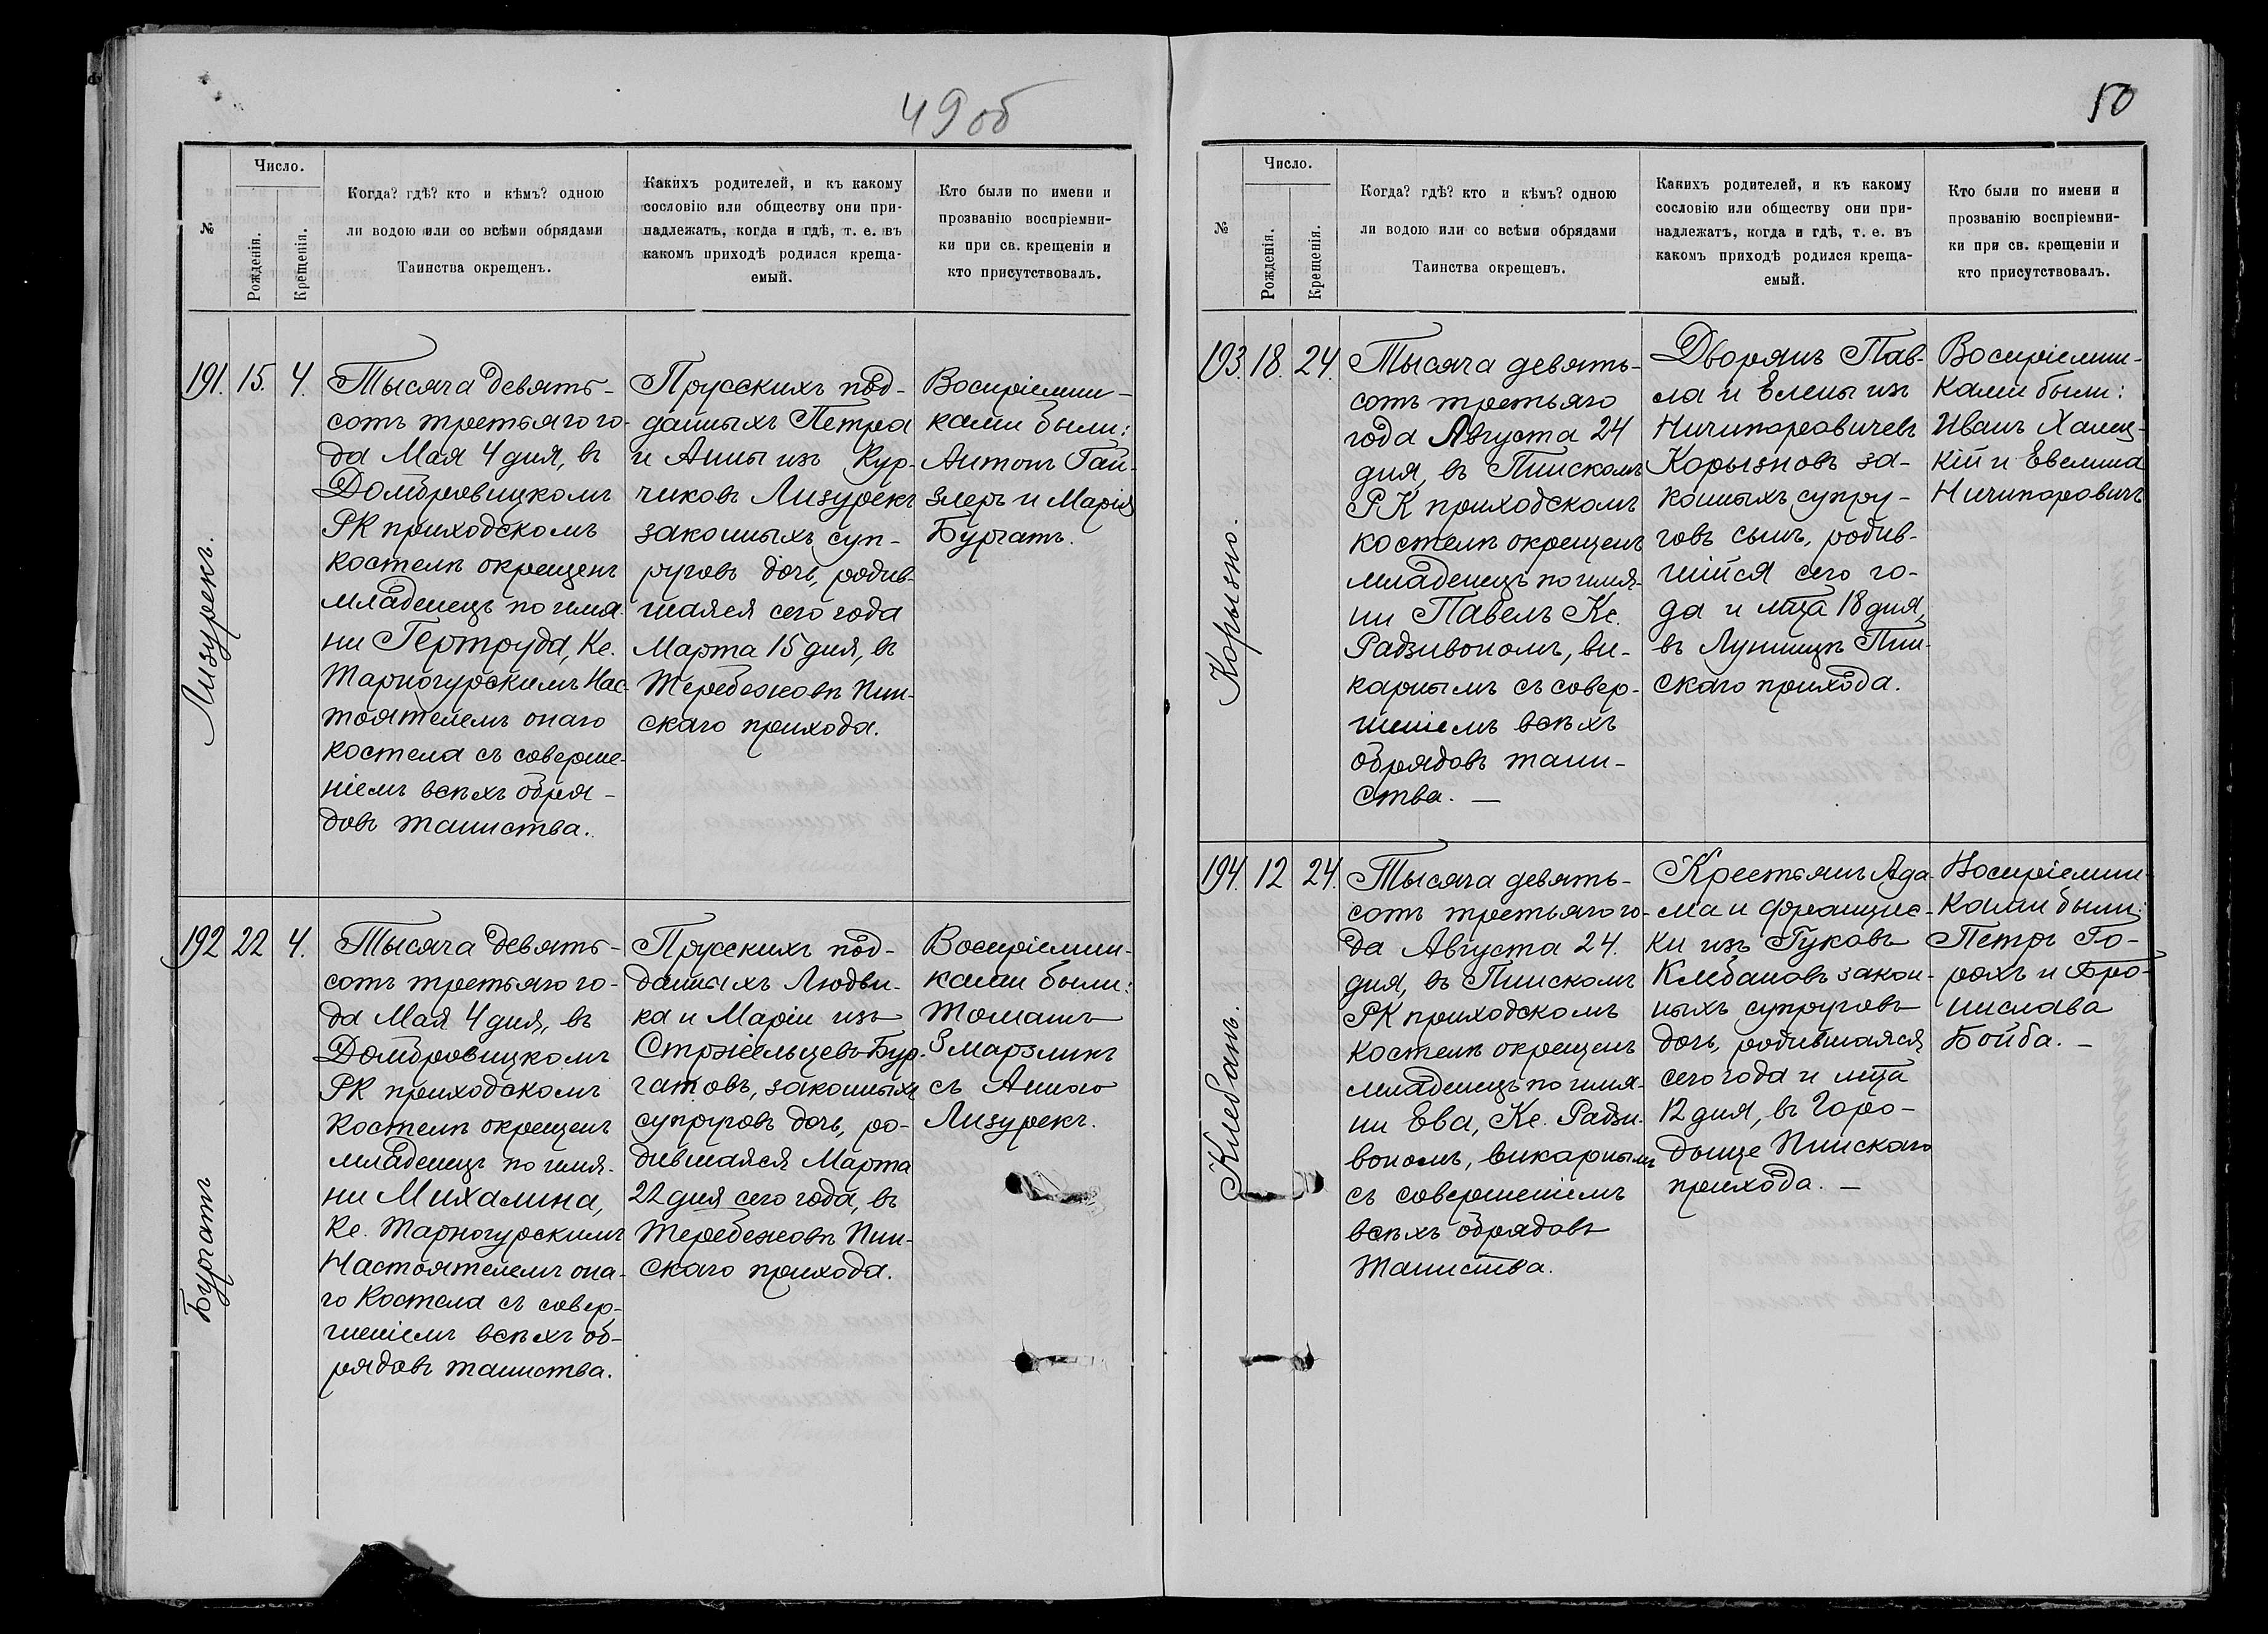 49 об
№
Число.
Рожденія.
Крещенія.
Когда? гдѣ? кто и кѣмъ? одною
ли водою или со всѣми обрядами
Таинства окрещенъ.
Какихъ родителей, и къ какому
сословію или обществу они при-
надлежатъ, когда и гдѣ, т. е. въ
какомъ приходѣ родился креща-
емый.
Кто были по имени и
прозванію воспріемни-
ки при св. крещеніи и
кто присутствовалъ.
191. 15. 4.
Лизурекъ.
Тысяча девять-
сотъ третьяго го-
да Мая 4 дня, въ
Домбровицкомъ
РК приходскомъ
костелѣ окрещенъ
младенецъ по имя-
ни Гертруда, Кс.
Тарногурскимъ Нас-
тоятелемъ онаго
костела съ соверше-
ніемъ всѣхъ обря-
довъ таинства.
Прусскихъ под-
данныхъ Петра
и Анны изъ Кур-
чиковъ Лизурекъ
законныхъ суп-
руговъ дочь, родив-
шаяся сего года
Марта 15 дня, въ
Теребежовѣ Пин-
скаго прихода.
Воспріемни-
ками были:
Антонъ Гай-
злеръ и Марія
Бургатъ.
192 22 4.
Бургатъ
Тысяча девять-
сотъ третьяго го-
да Мая 4 дня, въ
Домбровицкомъ
РК приходскомъ
костелѣ окрещенъ
младенецъ по имя-
ни Михалина,
Кс. Тарногурскимъ
Настоятелемъ она-
го Костела съ совер-
шеніемъ всѣхъ об-
рядовъ таинства.
Прусскихъ под-
данныхъ Людви-
ка и Маріи изъ
Стржельцевъ Бур-
гатовъ, законныхъ
супруговъ дочь, ро-
дившаяся Марта
22 дня сего года, въ
Теребежовѣ Пин-
скаго прихода.
Воспріемни-
ками были:
Томашъ
Змарзликъ
съ Анною
Лизурекъ.
50
№
Число.
Рожденія.
Крещенія.
Когда? гдѣ? кто и кѣмъ? одною
ли водою или со всѣми обрядами
Таинства окрещенъ.
Какихъ родителей, и къ какому
сословію или обществу они при-
надлежатъ, когда и гдѣ, т. е. въ
какомъ приходѣ родился креща-
емый.
Кто были по имени и
прозванію воспріемни-
ки при св. крещеніи и
кто присутствовалъ.
193. 18. 24.
Корызно.
Тысяча девять-
сотъ третьяго
года Августа 24
дня, въ Пинскомъ
РК приходскомъ
костелѣ окрещенъ
младенецъ по имя-
ни Павелъ Кс.
Радзивономъ, ви-
карнымъ съ совер-
шеніемъ всѣхъ
обрядовъ таин-
ства. —
Дворянъ Пав-
ла и Елены изъ
Ничипоровичевъ
Корызновъ за-
конныхъ супру-
говъ сынъ, родив-
шійся сего го-
да и мца 18 дня,
въ Лунинцѣ Пин-
скаго прихода.
Воспріемни-
ками были:
Иванъ Халец-
кій и Евелина
Ничипоровичъ
194. 12 24.
Клебанъ.
Тысяча девять-
сотъ третьяго го-
да Августа 24.
дня, въ Пинскомъ
РК приходскомъ
костелѣ окрещенъ
младенецъ по имя-
ни Ева, Кс. Радзи-
вономъ, викарнымъ
съ совершеніемъ
всѣхъ обрядовъ
Таинства.
Крестьянъ Ада-
ма и Францис-
ки изъ Гуковъ
Клебановъ закон-
ныхъ супруговъ
дочь, родившаяся
сего года и мца
12 дня, въ Горо-
дыще Пинскаго
прихода. —
Воспріемни-
ками были:
Петръ Го-
рохъ и Бро-
нислава
Бойба. —